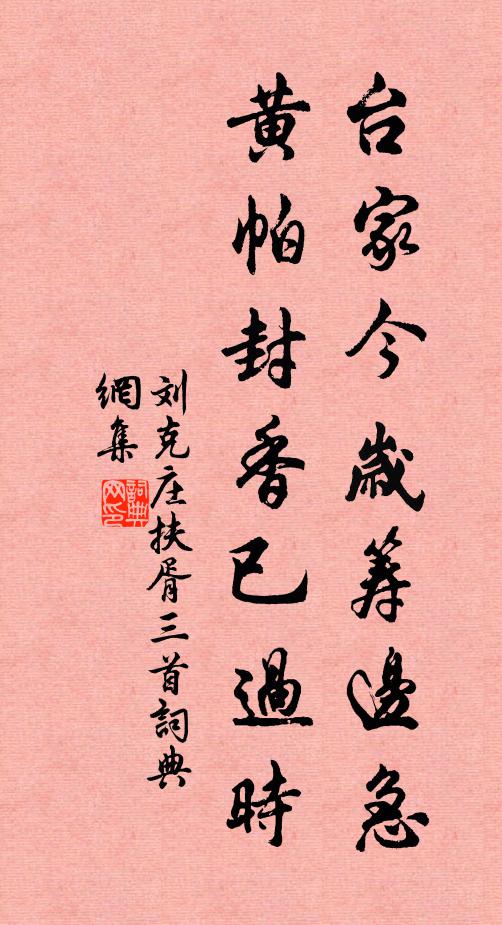 台家今歳筹邊急
黄帕封香已過時
刘克庄扶胥三首詞典
網集
詞典网印